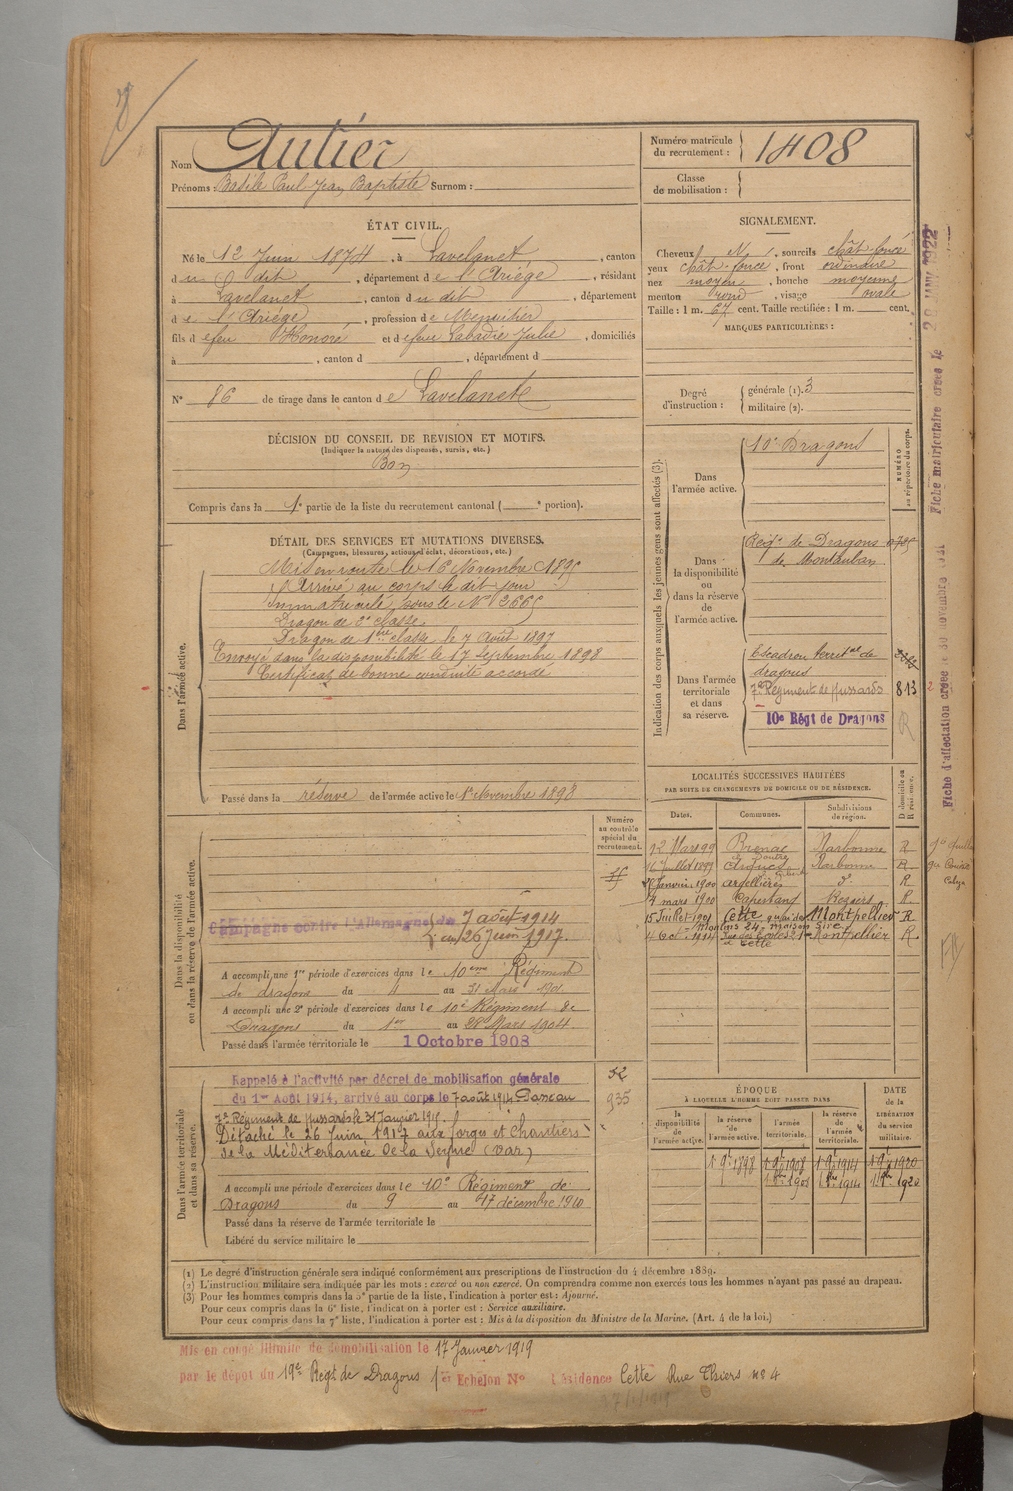 Nom Autier
Prénoms : Basile Paul Jean Baptiste Surnom :
Numéro matricule du recrutement : 1408
Classe de mobilisation :
ÉTAT CIVIL.
Né le 12 Juin 1874, à Lavelanet, canton
du dit, département de l'Ariège, résidant
à Lavelanet, canton du dit, département
de l'Ariège, profession de Menuisier
fils de feu Honoré et de feue Labadie Julie, domiciliés
à , canton d , département d
N° 86 de tirage dans le canton de Lavelanet
SIGNALEMENT.
Cheveux N, sourcils chât. foncé
yeux chât. foncé, front ordinaire
nez moyen, bouche moyenne
menton rond, visage ovale
Taille : 1 m. 67 cent. Taille rectifiée : 1 m. cent.
MARQUES PARTICULIÈRES :
Degré d'instruction : générale (1). 3
militaire (2).
DÉCISION DU CONSEIL DE REVISION ET MOTIFS.
(Indiquer la nature des dispenses, sursis, etc.)
Bon
Compris dans la 1e partie de la liste du recrutement cantonal ( e portion).
DÉTAIL DES SERVICES ET MUTATIONS DIVERSES.
(Campagnes, blessures, actions d'éclat, décorations, etc.)
Dans l'armée active.
Mis en route le 16 Novembre 1895
Arrivé au corps le dit jour
Immatriculé sous le N° 3665
Dragon de 2e classe
Dragon de 1ère classe le 7 Août 1897
Envoyé dans la disponibilité le 17 Septembre 1898
Certificat de bonne conduite accordé
Passé dans la réserve de l'armée active le 1er Novembre 1898
Indication des corps auxquels les jeunes gens sont affectés (3).
NUMÉRO au répertoire du corps.
Dans l'armée active.
10e Dragons
Dans la disponibilité ou dans la réserve de l'armée active.
Régt de Dragons
de Montauban
Dans l'armée territoriale et dans sa réserve.
Escadron territal de
dragons
7e Régiment de Hussards 813
10e Régt de Dragons R
Fiche matriculaire créée le 28 JANV 1922
Fiche d'affectation créée le 30 novembre
LOCALITÉS SUCCESSIVES HABITÉES
PAR SUITE DE CHANGEMENTS DE DOMICILE OU DE RÉSIDENCE.
Dates. Communes. Subdivisions de région. D domicile ou R résidence.
12 Mars 99 Brenac Narbonne R
16 Juillet 1899 Narbonne R
Janvier 1900 Argelliers do R
4 mars 1900 Capestang Béziers R
15 Juillet 1901 Cette Montpellier R
4 Oct. 1914 Cette Montpellier R
Numéro au contrôle spécial du recrutement.
Dans la disponibilité ou dans la réserve de l'armée active.
Campagne contre l'Allemagne du 7 août 1914
au 26 Juin 1917.
A accompli une 1re période d'exercices dans le 10ème Régiment
de dragons du 4 au 31 Mars 1901
A accompli une 2e période d'exercices dans le 10e Régiment de
Dragons du 1er au 28 Mars 1904
Passé dans l'armée territoriale le 1 Octobre 1908
Dans l'armée territoriale et dans sa réserve.
Rappelé à l'activité par décret de mobilisation générale
du 1er Août 1914, arrivé au corps le 7 août 1914 Passé au
7e Régiment de Hussards le 31 Janvier 1915.
Détaché le 26 Juin 1917 aux Forges et Chantiers
de la Méditerranée de la Seyne (Var)
A accompli une période d'exercices dans le 10e Régiment de
Dragons du 9 au 17 décembre 1910
Passé dans la réserve de l'armée territoriale le
Libéré du service militaire le
52
935
ÉPOQUE
À LAQUELLE L'HOMME DOIT PASSER DANS
la disponibilité de l'armée active. la réserve de l'armée active. l'armée territoriale. la réserve de l'armée territoriale.
DATE de la LIBÉRATION du service militaire.
1 9bre 1898 1 9bre 1908 1 9bre 1914 1 9bre 1920
(1) Le degré d'instruction générale sera indiqué conformément aux prescriptions de l'instruction du 4 décembre 1889.
(2) L'instruction militaire sera indiquée par les mots : exercé ou non exercé. On comprendra comme non exercés tous les hommes n'ayant pas passé au drapeau.
(3) Pour les hommes compris dans la 5e partie de la liste, l'indication à porter est : Ajourné.
Pour ceux compris dans la 6e liste, l'indication à porter est : Service auxiliaire.
Pour ceux compris dans la 7e liste, l'indication à porter est : Mis à la disposition du Ministre de la Marine. (Art. 4 de la loi.)
Mis en congé illimité de démobilisation le 17 Janvier 1919
par le dépôt du 19e Régt de Dragons Echelon N° Résidence Cette Rue Thiers no 4